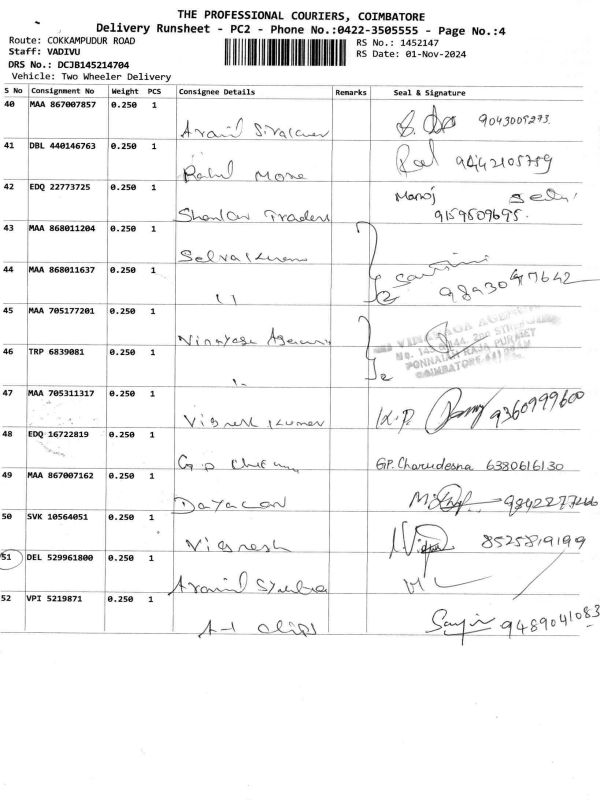 THE PROFESSIONAL COURIERS, COIMBATORE
Delivery Runsheet - PC2 - Phone No.:0422-3505555 - Page No.:4
Route: COKKAMPUDUR ROAD
RS No.: 1452147
Staff: VADIVU
RS Date: 01-Nov-2024
DRS No.: DCJB145214704
Vehicle: Two Wheeler Delivery
S No Consignment No Weight PCS Consignee Details Remarks Seal & Signature
40 MAA 867007857 0.250 1
9043005273
41 DBL 440146763 0.250 1
Rahul More 9442105759
42 EDQ 22773725 0.250 1
Manoj Selvi
Shankar Traders 9159509695
43 MAA 868011204 0.250 1
Selvakumar
44 MAA 868011637 0.250 1
" 2 9893047642
45 MAA 705177201 0.250 1
Vinayaga Agency
46 TRP 6839081 0.250 1
" 2
PONNAIAH RAJA PURAM
COIMBATORE
47 MAA 705311317 0.250 1
Vignesh Kumar K.P. 9360999600
48 EDQ 16722819 0.250 1
G.P GP. Charudesna 6380616130
49 MAA 867007162 0.250 1
Dayacon 9842277266
50 SVK 10564051 0.250 1
Vignesh 8525819199
51 DEL 529961800 0.250 1
Aravind
52 VPI 5219871 0.250 1
A-1 Clips 9489041083